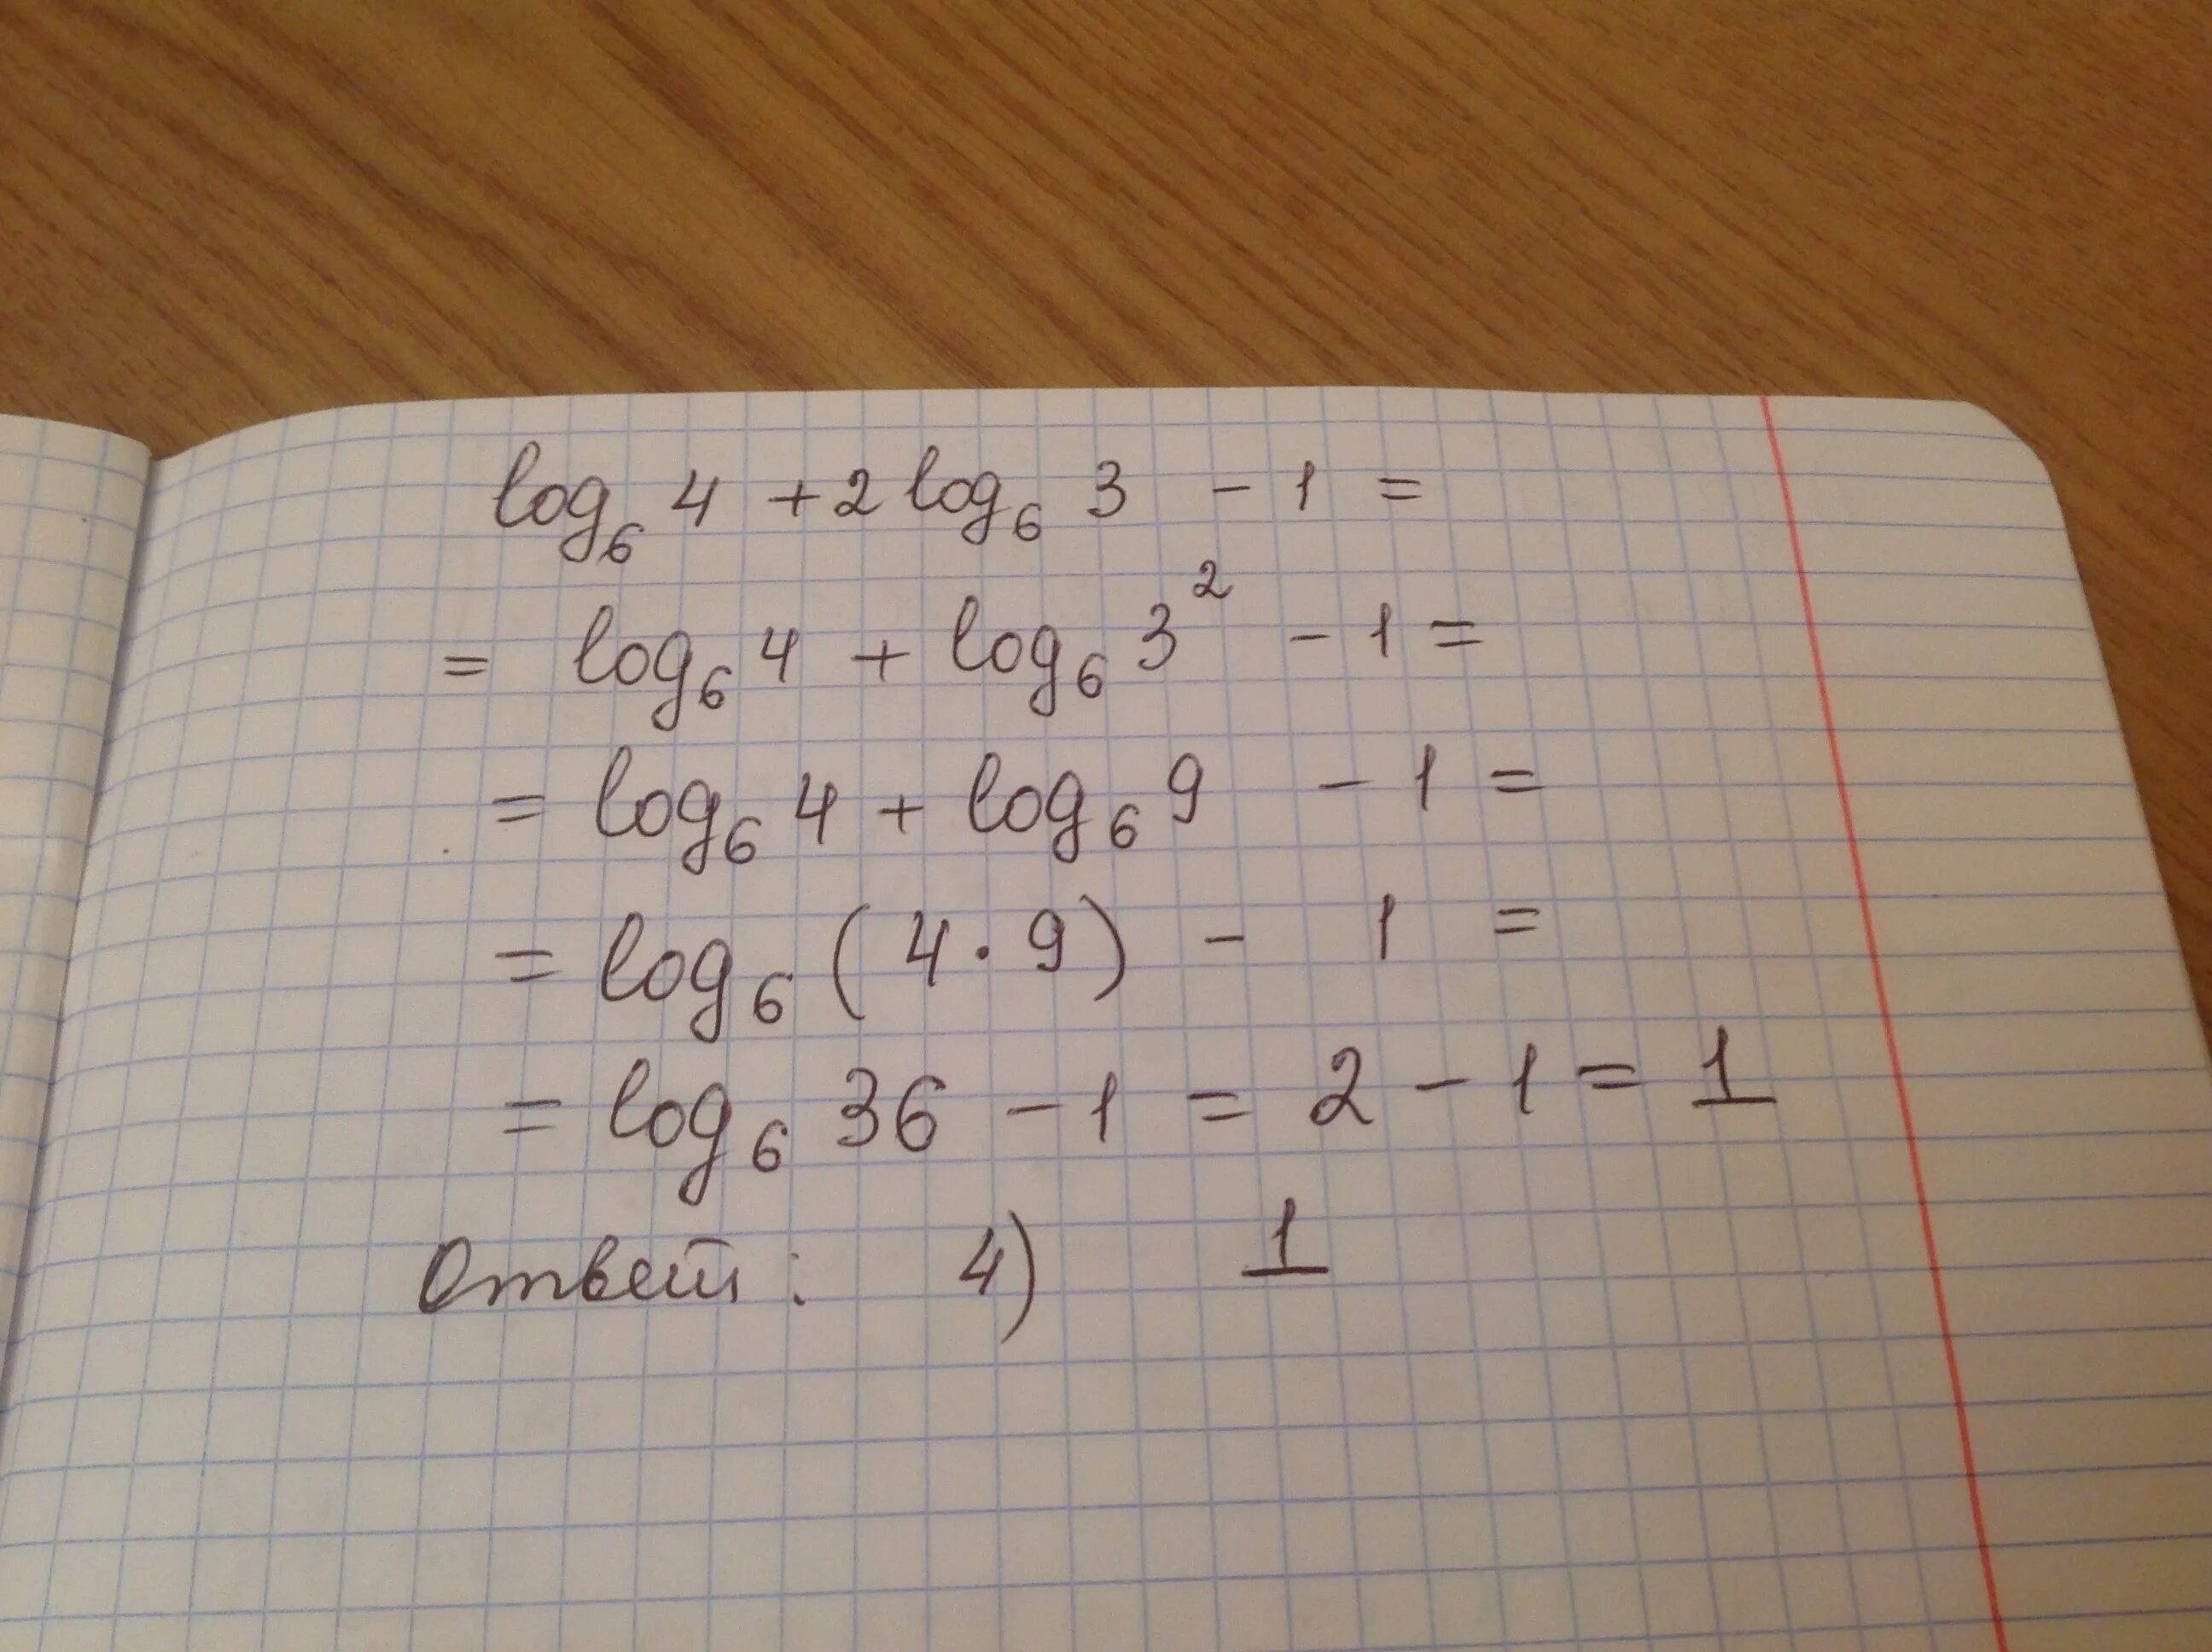 log₆ 4 + 2 log₆ 3 - 1 =
= log₆ 4 + log₆ 3² - 1 =
= log₆ 4 + log₆ 9 - 1 =
= log₆ (4 · 9) - 1 =
= log₆ 36 - 1 = 2 - 1 = 1
Ответ: 4) 1